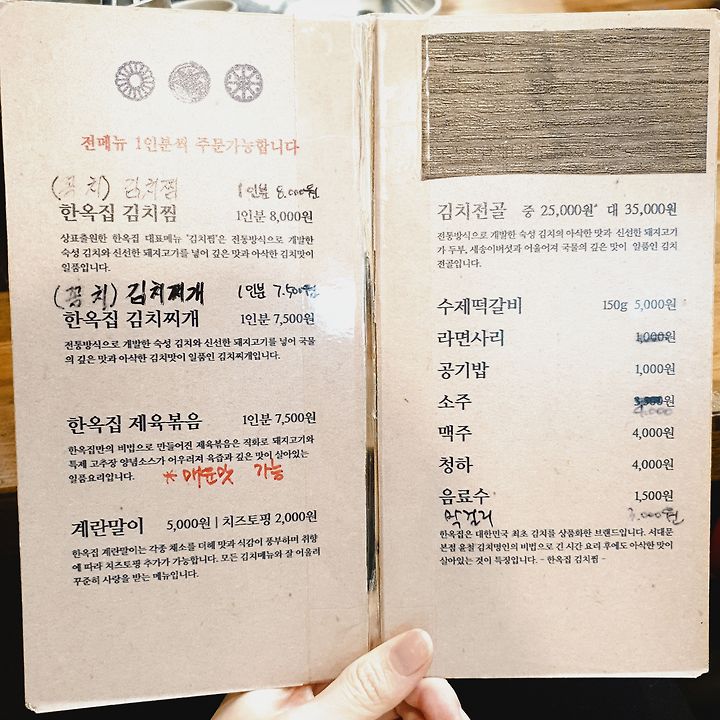 전메뉴 1인분씩 주문가능합니다
(꽁치) 김치찜 1인분 8,000원
한옥집 김치찜 1인분 8,000원
상표출원한 한옥집 대표메뉴 '김치찜'은 전통방식으로 개발한
숙성 김치와 신선한 돼지고기를 넣어 깊은 맛과 아삭한 김치맛이
일품입니다.
(꽁치) 김치찌개 1인분 7,500원
한옥집 김치찌개 1인분 7,500원
전통방식으로 개발한 숙성 김치와 신선한 돼지고기를 넣어 국물
의 깊은 맛과 아삭한 김치맛이 일품인 김치찌개입니다.
한옥집 제육볶음 1인분 7,500원
한옥집만의 비법으로 만들어진 제육볶음은 직화로 돼지고기와
특제 고추장 양념소스가 어우러져 육즙과 깊은 맛이 살아있는
일품요리입니다. * 매운맛 가능
계란말이 5,000원 | 치즈토핑 2,000원
한옥집 계란말이는 각종 채소를 더해 맛과 식감이 풍부하며 취향
에 따라 치즈토핑 추가가 가능합니다. 모든 김치메뉴와 잘 어울려
꾸준히 사랑을 받는 메뉴입니다.
김치전골 중 25,000원 대 35,000원
전통방식으로 개발한 숙성 김치의 아삭한 맛과 신선한 돼지고기
가 두부, 새송이버섯과 어울어져 국물의 깊은 맛이 일품인 김치
전골입니다.
수제떡갈비 150g 5,000원
라면사리 1,000원
공기밥 1,000원
소주 3,500원
4,000
맥주 4,000원
청하 4,000원
음료수 1,500원
막걸리 3,000원
한옥집은 대한민국 최초 김치를 상품화한 브랜드입니다. 서대문
본점 윤철 김치명인의 비법으로 긴 시간 요리 후에도 아삭한 맛이
살아있는 것이 특징입니다. - 한옥집 김치찜 -